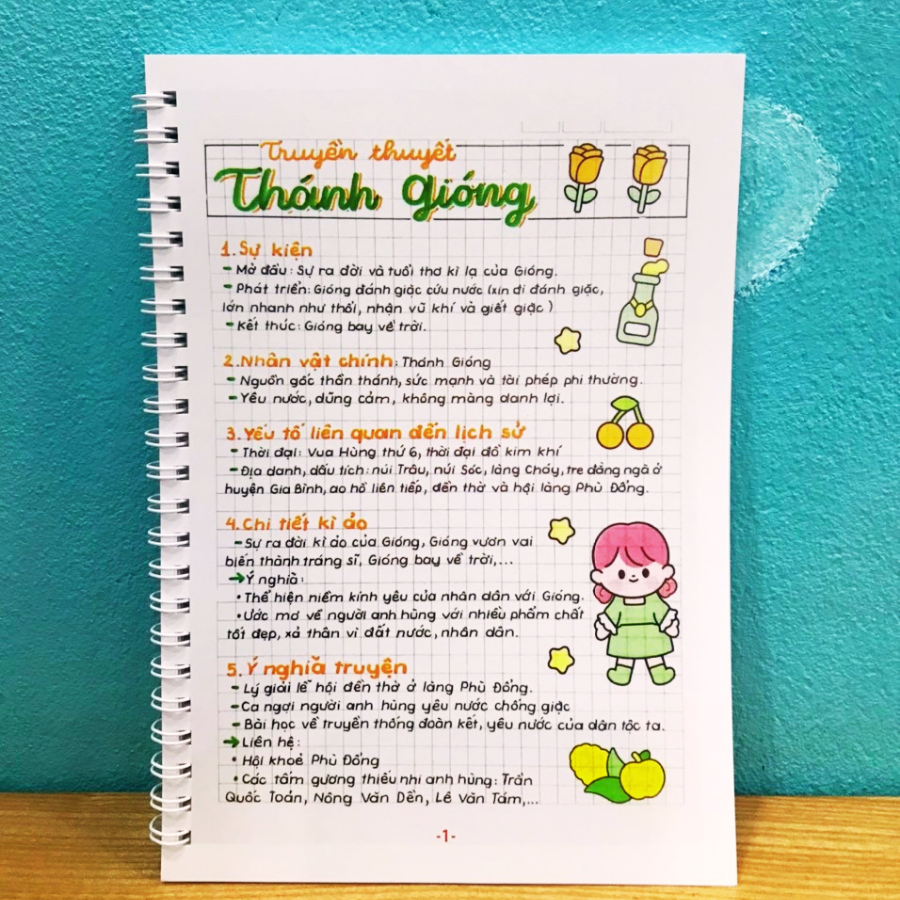 Truyền thuyết
Thánh Gióng
1. Sự kiện
- Mở đầu: Sự ra đời và tuổi thơ kì lạ của Gióng.
- Phát triển: Gióng đánh giặc cứu nước (xin đi đánh giặc,
lớn nhanh như thổi, nhận vũ khí và giết giặc)
- Kết thúc: Gióng bay về trời.
2. Nhân vật chính: Thánh Gióng
- Nguồn gốc thần thánh, sức mạnh và tài phép phi thường.
- Yêu nước, dũng cảm, không màng danh lợi.
3. Yếu tố liên quan đến lịch sử
- Thời đại: Vua Hùng thứ 6, thời đại đồ kim khí
- Địa danh, dấu tích: núi Trâu, núi Sóc, làng Cháy, tre đằng ngà ở
huyện Gia Bình, ao hồ liên tiếp, đền thờ và hội làng Phù Đổng.
4. Chi tiết kì ảo
- Sự ra đời kì ảo của Gióng, Gióng vươn vai
biến thành tráng sĩ, Gióng bay về trời,...
→ Ý nghĩa:
• Thể hiện niềm kính yêu của nhân dân với Gióng.
• Ước mơ về người anh hùng với nhiều phẩm chất
tốt đẹp, xả thân vì đất nước, nhân dân.
5. Ý nghĩa truyện
- Lý giải lễ hội đền thờ ở làng Phù Đổng.
- Ca ngợi người anh hùng yêu nước chống giặc
- Bài học về truyền thống đoàn kết, yêu nước của dân tộc ta.
→ Liên hệ:
• Hội khoẻ Phù Đổng
• Các tấm gương thiếu nhi anh hùng: Trần
Quốc Toản, Nông Văn Dền, Lê Văn Tám,...
-1-